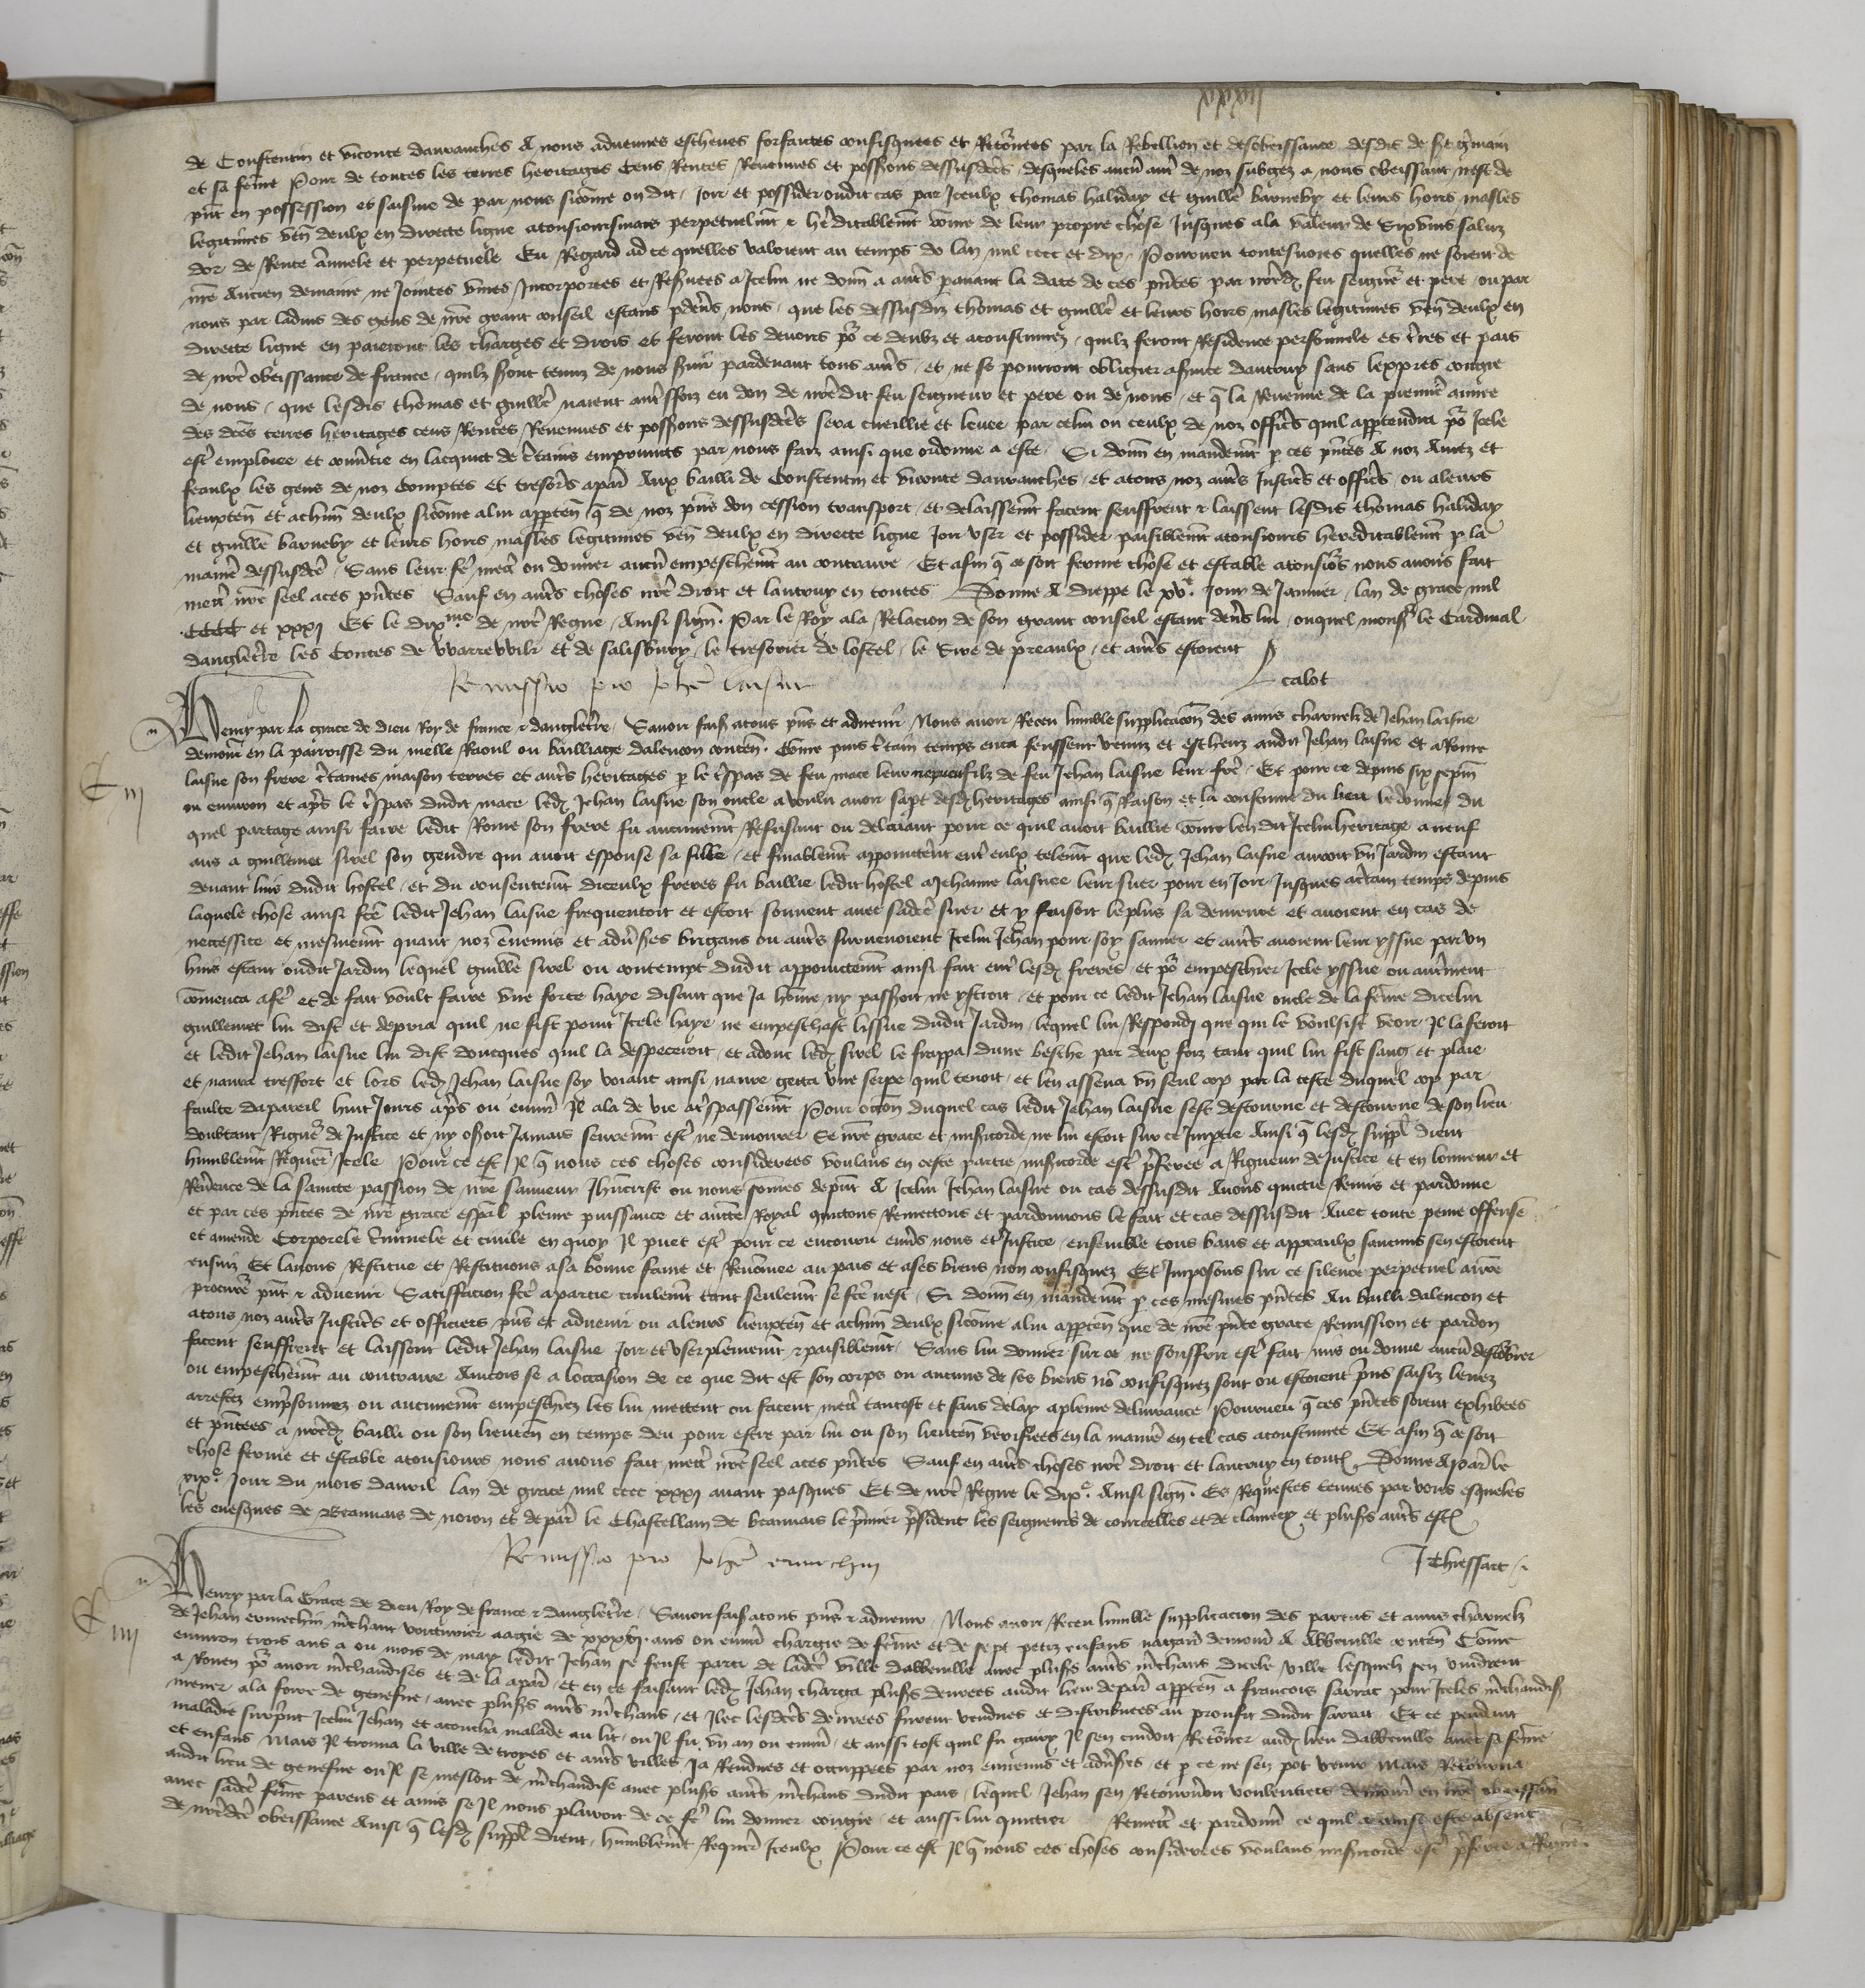 xxxii
de Constentin et viconte davranches A nous advenues escheues forfaictes confisquees et Retornees par la Rebellion et desobeissance desdis de st gmain
et sa feme Pour de toutes les terres heritages Cens Rentes Revenues et possessions dessusdcts desqueles aucun autre de noz subgez a nous obeissant nest de
pnt en possession et saisine de par nous sicome on dit Joir et possider oudit cas par Iceulx thomas haliday et guille barneby et leurs hoirs masles
legitimes ven deulx en directe ligne atousiourmais perpetuelmt et heditablemt come de leur propre chose Jusques ala valeur de Sixvins saluz
dor de Rente annuele et perpetuele Eu Regard ad ce quelles valoient au temps de lan mil cccc et dix Pourveu toutesvoies quelles ne soient de
nre Ancien demaine ne Jointes unies Incorporees et Reservees a Icelui ne donn a autres paravant la date de ces pntes par nredit feu seigneur et pere ou par
nous par ladvis des gens de nre grant conseil estans devers nous que les dessusdiz thomas et guille et leurs hoirs masles legitimes ven deulx en
directe ligne en paieront les charges et drois et feront les devoirs por ce deubz et acoustumez quilz feront Residence personnele es terres et pais
de nre obeissance de france quilz seront tenuz de nous servir pardevant tous autres et ne se pourront obligier a service dautruy sans lexpres congie
de nous que lesdis thomas et guille naient autresfoiz eu don de nredit feu seigneur et pere ou de nous et que la Revenue de la premiere annee
des dctes terres heritages cens Rentes Revenues et possessions dessusdcts sera cueillie et levee par celui ou ceulx de noz officiers quil appartendra por Icele
estre emploiee et convertie en lacquict de certains emprunts par nous faiz ainsi que ordonne a este Si donn en mandemt par ces pntes A noz Amez et
feaulx les gens de noz Comptes et tresoriers a paris Aux bailli de Constentin et viconte davranches et atous noz autres Justiciers et officiers ou aleurs
lieuxten et achun deulx sicome alui apparten que de noz pns don cession transport et delaissemt facent seuffrent et laissent lesdis thomas haliday
et guille barneby et leurs hoirs masles legitimes ven deulx en directe ligne Joir user et possider paisiblemt atousiours hereditablemt par la
maniere dessusdcte Sans leur faire mettre ou donner aucun empeschemt au contraire Et afin que ce soit ferme chose et estable atousiors nous avons fait
mettre nre seel aces pntes Sauf en autres choses nre droit et lautruy en toutes Donne A dieppe le xve Jour de Janvier lan de grace mil
CCCC et xxxi Et le dixme de nre Regne Ainsi sign. Par le Roy ala Relacion de son grant conseil estant devers lui ouquel monsr le Cardinal
dangleterre les Contes de Warrewilr et de salisbury le tresorier de lostel le Sire de preaulx et autres estoient
calot
Remissio pro Johe laisne
Henry par la grace de dieu Roy de france et dangleterre Savoir fais atous pns et advenir Nous avoir Receu humble supplicacon des amis charnelz de Jehan laisne
demorn en la parroisse du mesle Raoul ou bailliage dalencon conten. Come puis certain temps enca feussent venuz et escheuz audit Jehan laisne et a Rome
laisne son frere certaines maison terres et autres heritages par le trespas de feu mace leur nepveu filz de feu Jehan laisne leur frere Et pour ce depuis six sepmn
ou environ et apres le trespas dudit mace ledit Jehan laisne son oncle a voulu avoir sa part desditz heritages ainsi que Raison et la coustume du lieu le donne du
quel partage ainsi faire ledit Rome son frere fu aucunemt Refusant ou delaiant pour ce quil avoit baillie come len dit Icelui heritage a neuf
ans a guillemet sirel son gendre qui avoit espouse sa fille et finablemt appointerent entre eulx telemt que ledit Jehan laisne auroit un Jardin estant
devant luis dudit hostel et du consentemt diceulx freres fu baillie ledit hostel a Jehanne laisnee leur suer pour en Joir Jusques a certain temps depuis
laquele chose ainsi fcte ledit Jehan laisne frequentoit et estoit souvent avec sadcte suer et y faisoit leplus sa demeure et avoient en cas de
necessite et mesmemt quant noz ennemis et adversres brigans ou autres survenoient Icelui Jehan pour soy sauver et autres avoient leur yssue par un
huis estant oudit Jardin lequel guille sirel ou contempt dudit appointemt ainsi fait entre lesdis freres et por empeschier Icele yssue ou autrement
comenca a faire et de fait voult faire une forte haye disant que Ja home ny passeroit ne ystroit et pour ce ledit Jehan laisne oncle de la feme dicelui
guillemet lui dist et depria quil ne fist point Icele haye ne empeschast lissue dudit Jardin lequel lui Respondi que qui le voulsist veoir Il la feroit
et ledit Jehan laisne lui dist doncques quil la despeceroit et adonc ledit sirel le frappa dune besche par deux foiz tant quil lui fist sang et plaie
et navra tresfort et lors ledit Jehan laisne soy voiant ainsi navre getta une serpe quil tenoit et len assena un seul cop par la teste duquel cop par
faulte dapareil huit Jours apres ou environ Il ala de vie a trespassemt Pour occon duquel cas ledit Jehan laisne sest destourne et destourne de son lieu
doubtant Rigueur de Justice et ny oseroit Jamais seuremt estre ne demourer Se nre grace et misericorde ne lui estoit sur ce Impartie Ainsi que lesditz suppl dient
humblemt Requerans Icele Pour ce est Il que nous ces choses considerees voulans en ceste partie misericorde estre preferee a Rigueur de Justice et en lonneur et
Reverence de la saincte passion de nre sauveur Jhucrist ou nous somes depnt A Icelui Jehan laisne ou cas dessusdit Avons quictie Remis et pardonne
et par ces pntes de nre grace espal pleine puissance et aucte Royal quictons Remettons et pardonnons le fait et cas dessusdit Avec toute peine offense
et amende Corporele criminele et civile en quoy Il puet estre pour ce encouru envers nous et Justice ensemble tous bans et appeaulx saucuns sen estoient
ensuiz Et lavons Restitue et Restituons asa bonne fame et Renomee au pais et ases biens non confisquez Et Imposons sur ce silence perpetuel a nre
procureur pnt et advenir Satisfacion fcte apartie civilemt tant seulemt se fcte nest Si donn en mandemt par ces mesmes pntes Au bailli dalencon et
atous noz autres Justiciers et officiers pns et advenir ou aleurs lieuxten et achun deulx sicome alui apparten que de nre pnte grace Remission et pardon
facent seuffrent et laissent ledit Jehan laisne Joir et user plenemt et paisiblemt Sans lui donner sur ce ne souffrir estre fait mis ou donne aucun destorbier
ou empeschemt au contraire Aincois se a loccasion de ce que dit est son corps ou aucuns de ses biens no confisquez sont ou estoient prins saisiz levez
arrestez emprisonnez ou aucunemt empeschiez les lui mettent ou facent mettre tantost et sans delay apleine delivrance Pourveu que ces pntes soient exhibees
et pntees a nredit bailli ou son lieuten en temps deu pour estre par lui ou son lieuten verifiees en la maniere en tel cas acoustumee Et afin que ce soit
chose ferme et estable atousiours nous avons fait mettre nre seel aces pntes Sauf en autres choses nre droit et lautruy en toutes Donne A paris le
xixe Jour du mois davril lan de grace mil cccc xxxi avant pasques Et de nre Regne le dixe. Ainsi sign. Es Requestes tenues par vous esqueles
les evesques de Beauvais de noion et de paris le Chastellain de beauvais le premier president les seigneurs de courcelles et de clamecy et plusrs autres est
J Thiessart
Remissio pro Johe ermechin
Henry par la Grace de dieu Roy de france et dangleterre Savoir fais atous pns et advenir Nous avoir Receu humble supplicacion des parens et amis charnelz
de Jehan ermechin mchant voicturier aagie de xxxvi ans ou environ chargie de feme et de sept petiz enfans nagaires demourn A Abbeville conten Come
environ trois ans a ou mois de may ledit Jehan se feust parti de ladcte ville dabbeville avec plusrs autres mchans dicele ville lesquelz sen vindrent
a Rouen por avoir mchandises et de la a paris et en ce faisant ledit Jehan charga plusrs denrees audit lieu de paris apparten a francois savrac pour Iceles mchandis
mener ala foire de genesne avec plusrs autres mchans et Ilec lesdctes denrees furent vendues et distribuees au prouffit dudit savrac Et ce pendent
maladie seurprint Icelui Jehan et acoucha malade au lit ou Il fu un an ou environ et aussi tost quil fu gary Il sen cuidoit Retorner audit lieu dabbeville avec sa feme
et enfans Mais Il trouva la ville de troyes et autres villes Ja Rendues et occuppees par noz ennemis et adversres et par ce ne sen pot venir Mais Retourna
audit lieu de genesne ou Il se mesloit de mchandise avec plusrs autres mchans dudit pais lequel Jehan sen Retourneroit voulentiers demourer en nre obeissan
avec sadcte feme parens et amis se Il nous plaisoit de ce faire lui donner congie et aussi lui quictier Remettre et pardonner ce quil a ainsi este absent
de nredcte obeissance Ainsi que lesditz suppl dient humblemt Requerans Iceulx Pour ce est Il que nous ces choses considerees voulans misericorde estre preferee a Rigueur